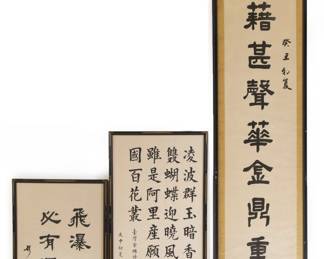 藉甚聲華金鼎重
癸丑初夏
凌波群玉暗香
蝴蝶迎曉風
雖是阿里座願
國百花叢
飛瀑
必有